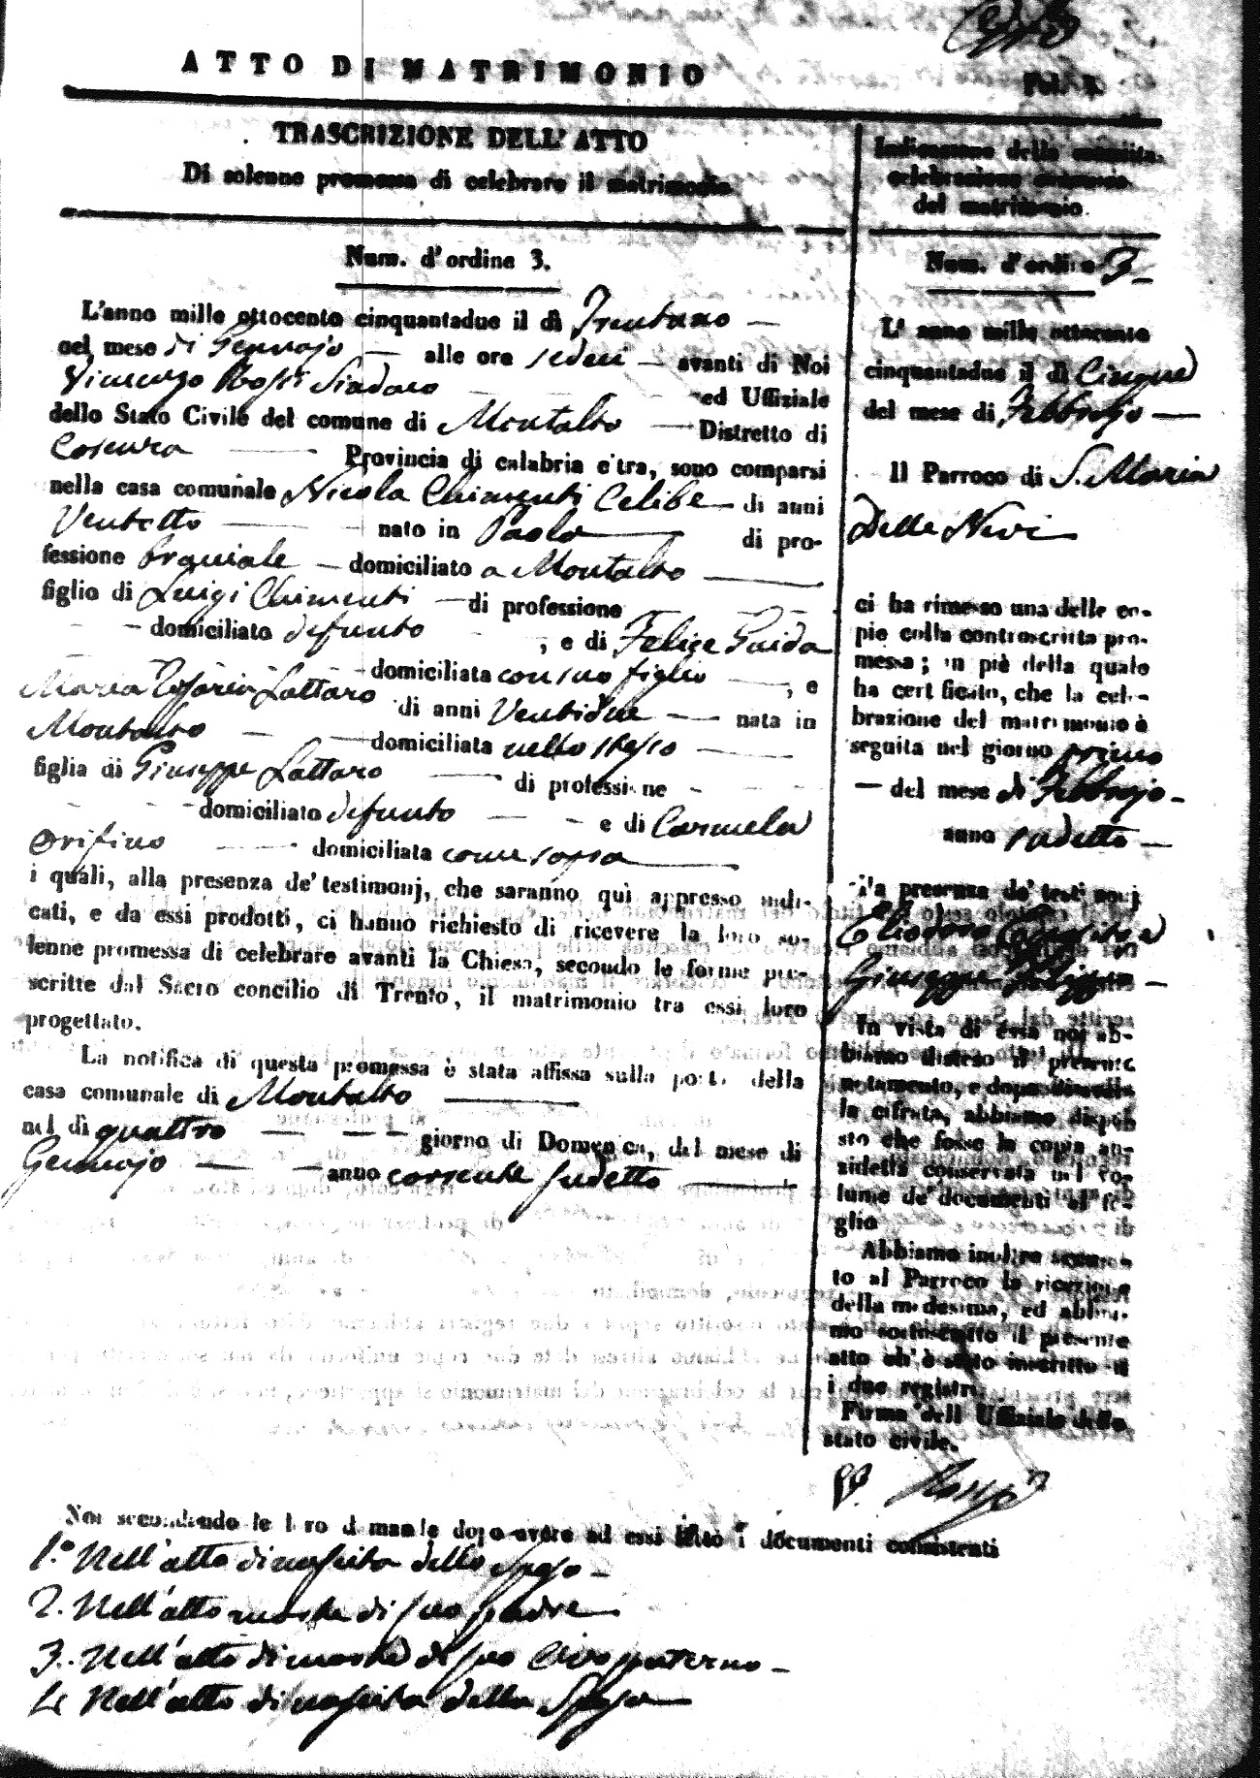 ATTO DI MATRIMONIO
TRASCRIZIONE DELL'ATTO
Di solenne promessa di celebrare il matrimonio
Num. d'ordine 3.
L'anno mille ottocento cinquantadue il dì Trentuno
nel mese di Gennajo alle ore sedeci avanti di Noi
Vincenzo Rossi Sindaco ed Uffiziale
dello Stato Civile del comune di Montalto Distretto di
Cosenza Provincia di calabria citra, sono comparsi
nella casa comunale Nicola Chimenti Celibe di anni
Ventotto nato in Paola di pro-
fessione domiciliato a Montalto
figlio di Luigi Chimenti di professione
domiciliato defunto ; e di Felice Guida
domiciliata con suo figlio , e
Maria Rosaria Lattaro di anni Ventidue nata in
Montalto domiciliata nello stesso
figlia di Giuseppe Lattaro di professione
domiciliato defunto e di Carmela
Orifino domiciliata come sopra
i quali, alla presenza de' testimonj, che saranno quì appresso indi-
cati, e da essi prodotti, ci hanno richiesto di ricevere la loro so-
lenne promessa di celebrare avanti la Chiesa, secondo le forme pre-
scritte dal Sacro concilio di Trento, il matrimonio tra essi loro
progettato.
La notifica di questa promessa è stata affissa sulla porta della
casa comunale di Montalto
nel dì quattro giorno di Domenica, del mese di
Gennajo anno corrente sudetto
Indicazione della seguita
celebrazione
del matrimonio.
Num. d'ordine 3
L' anno mille ottocento
cinquantadue il dì Cinque
del mese di Febbrajo
Il Parroco di S. Maria
Delle Nevi
ci ha rimesso una delle co-
pie della controscritta pro-
messa; in piè della quale
ha certificato, che la cele-
brazione del matrimonio è
seguita nel giorno primo
del mese di Febbrajo
anno sudetto
alla presenza de' testimonj
Eliodoro Esposito e
Giuseppe
In vista di essa noi ab-
biamo disteso il presente
notamento, e dopo di aver-
la cifrata, abbiamo dispo-
sto che fosse la copia an-
zidetta conservata nel vo-
lume de' documenti al fo-
glio
Abbiamo inoltre
to al Parroco la ricezione
della medesima, ed abbia-
mo sottoscritto il presente
atto ch' è stato inscritto su
i due registri.
Firma dell' Uffiziale dello
stato civile.
V. Rossi
Noi secondando le loro domande dopo avere ad essi letto i documenti consistenti
1.° Nell'atto di nascita dello Sposo
2. Nell'atto morte di suo padre
3. Nell'atto di morte di suo Avo paterno
4. Nell'atto di nascita della Sposa